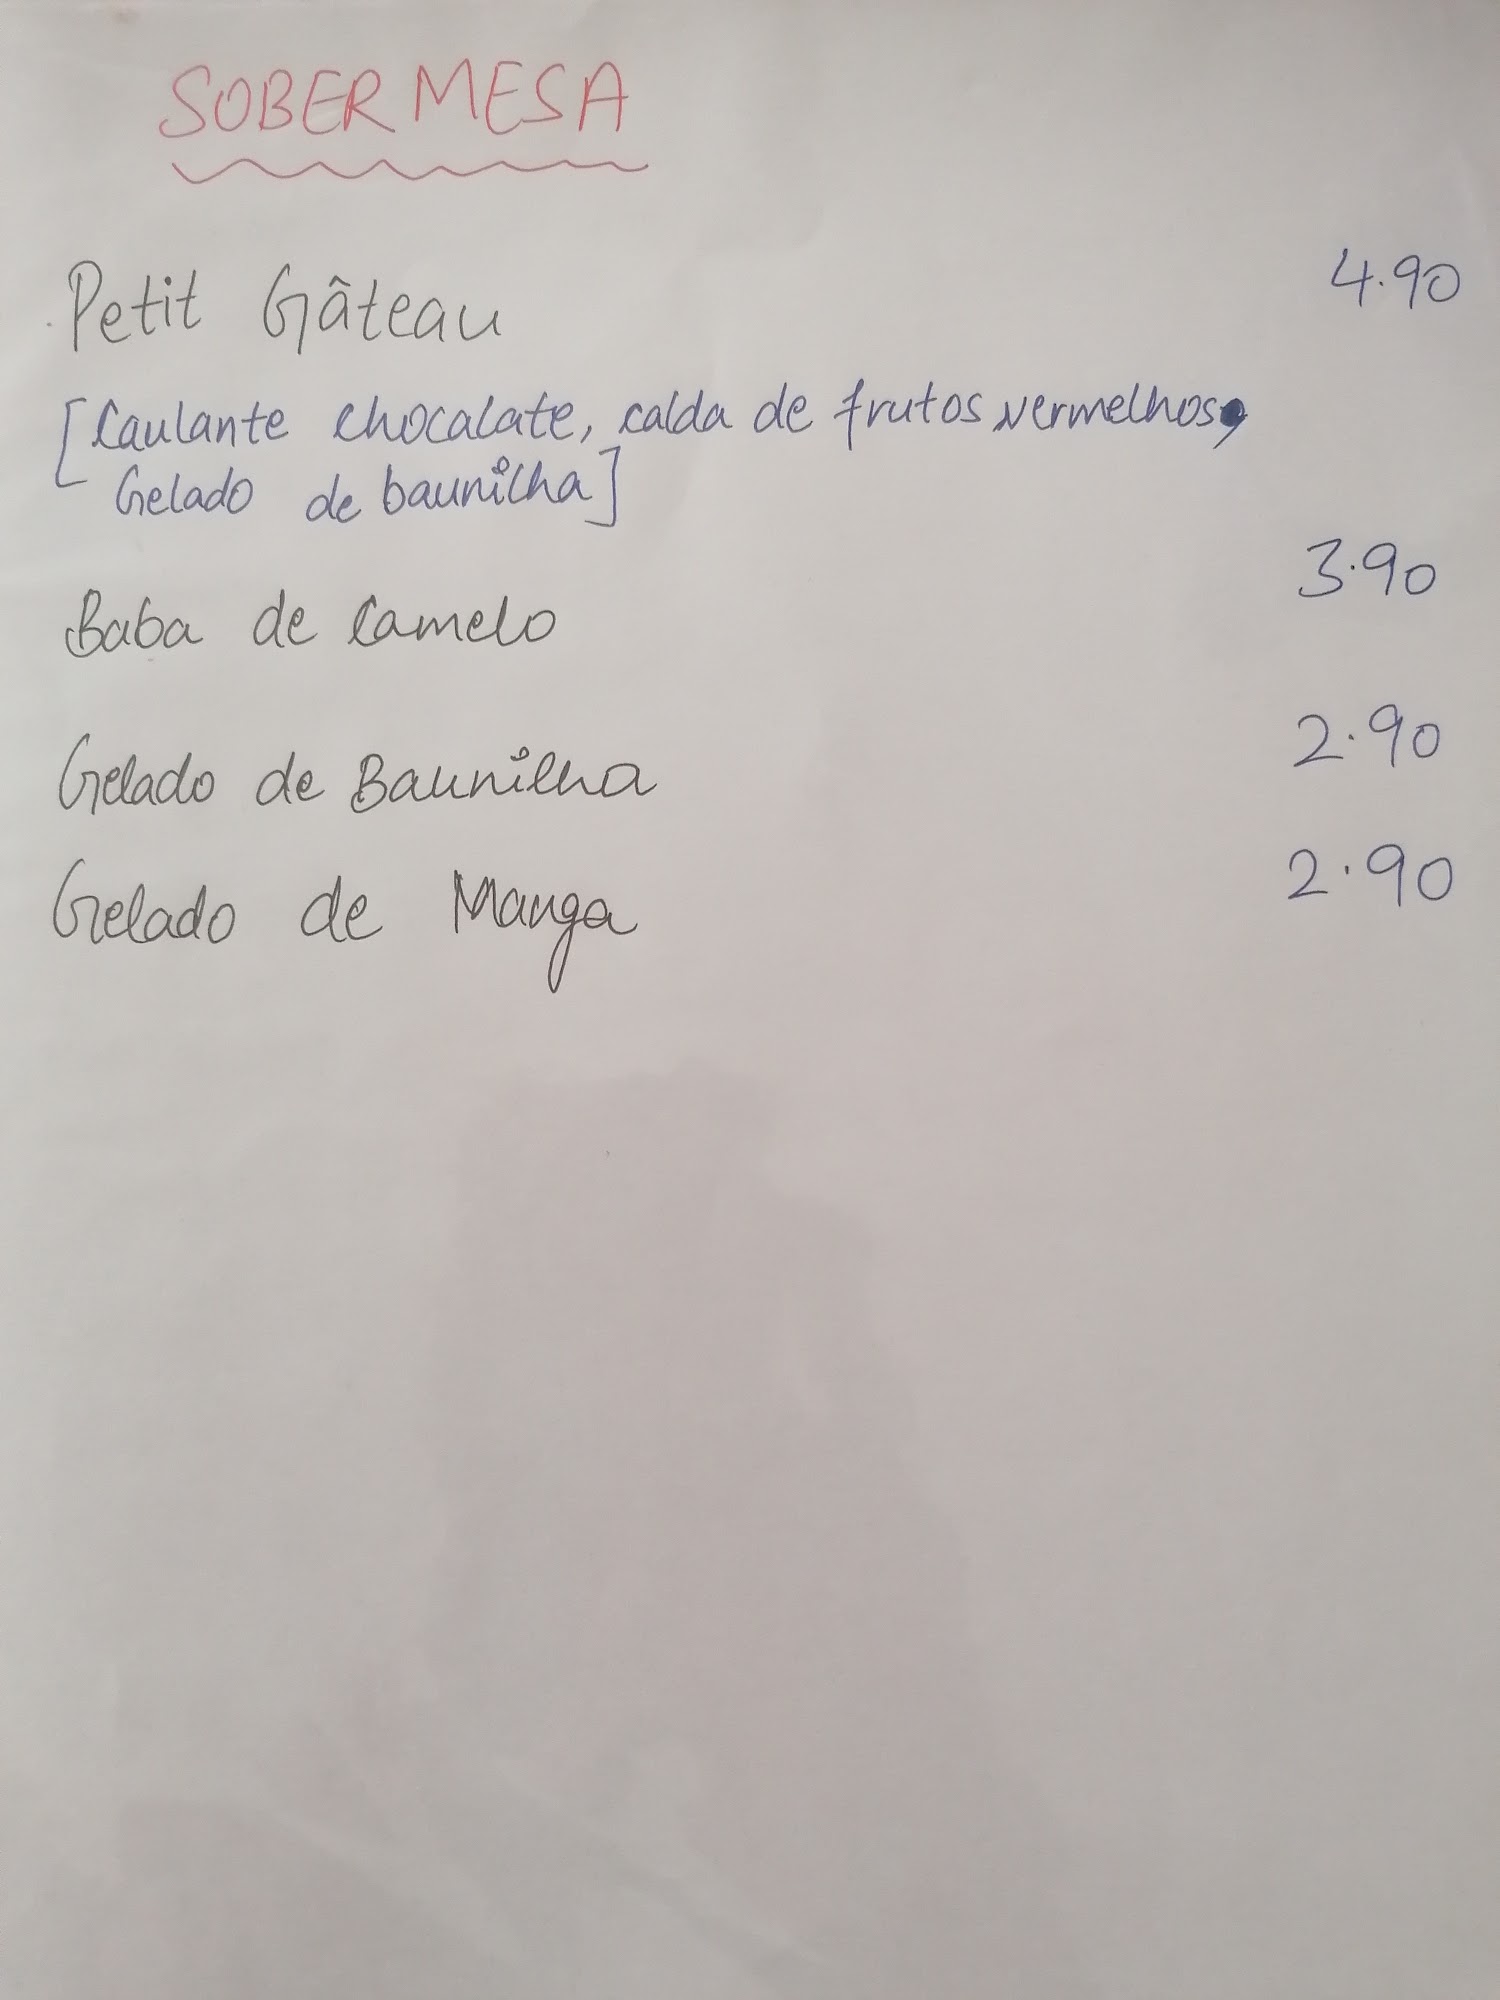 SOBERMESA
Petit Gâteau 4.90
[Caulante chocalate, calda de frutos vermelhos,
Gelado de baunilha]
Baba de Camelo 3.90
Gelado de Baunilha 2.90
Gelado de Manga 2.90